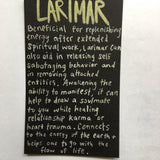 LARIMAR
Beneficial for replenishing
energy after extended
Spiritual work, Larimar can
also aid in releasing self
sabotaging behavior and
in removing attached
entities. Awakening the
ability to manifest, it can
help to draw a soulmate
to you while healing
relationship karma or
heart trauma. Connects
to the energy of the earth +
helps one to go with the
flow of life.